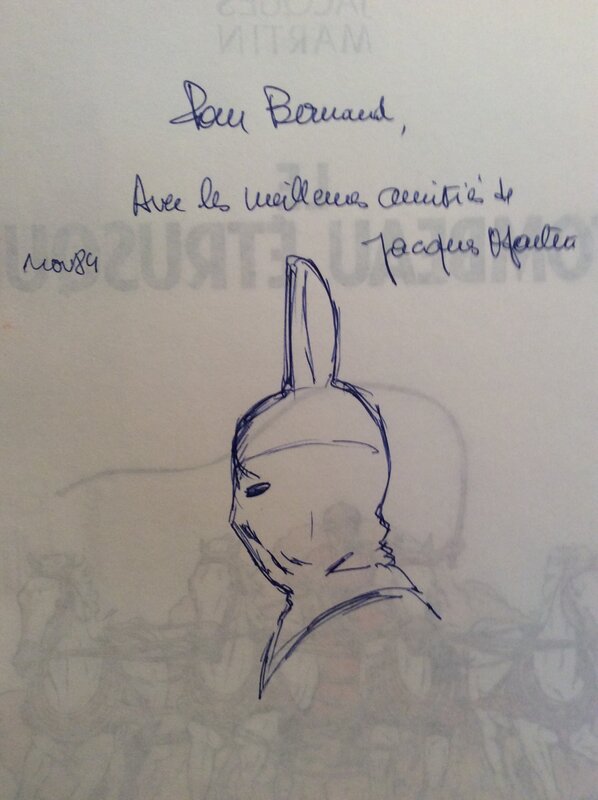 JACQUES
MARTIN
Pour Bernard,
Avec les meilleures amitiés de
Jacques Martin
Nov 84
LE
TOMBEAU ÉTRUSQU